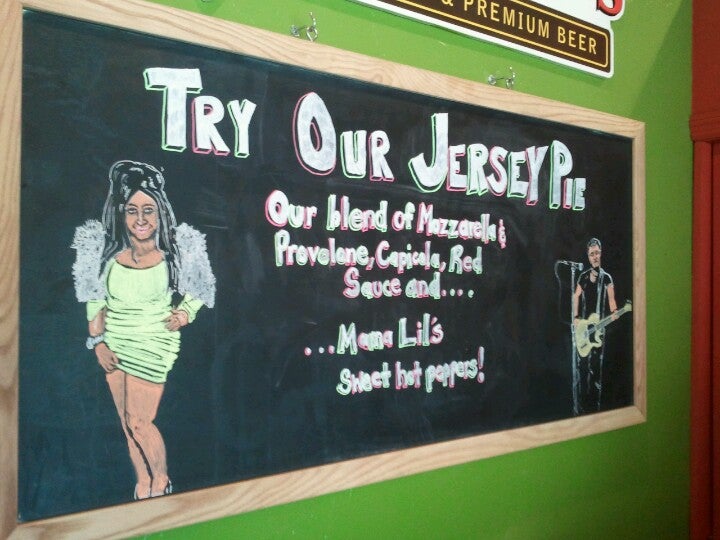 & PREMIUM BEER
TRY OUR JERSEY PIE
Our blend of Mozzarella &
Provolone, Capicola, Red
Sauce and....
...Mama Lil's
Sweet hot peppers!